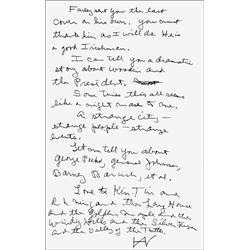 Farey sent you the last
cover on his own. you must
thank him as I will do. He is
a good Irishman.
I can tell you a dramatic
story about women and
the President.
Some times this all seems
like a night mare to me.
A strange city—
strange people—strange
events.
Let me tell you about
George Peek, General Johnson,
Barney Baruch, et al.
Love to Kin Tin and
R and the Lazy House
And the Golden and the
Windy Hills and the Silver
and the Valley of the Turtles.